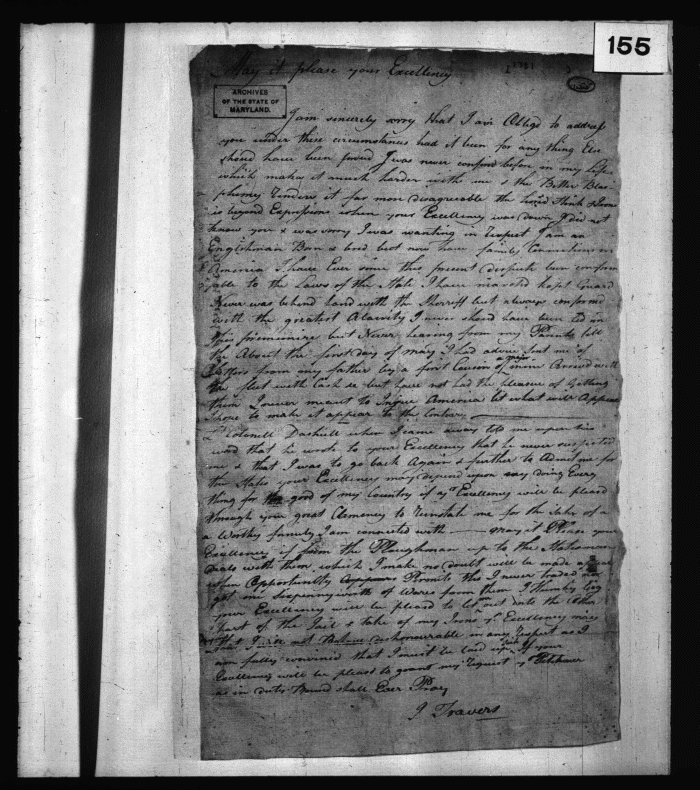 155
May it please your Excellency
1781
ARCHIVES
OF THE STATE OF
MARYLAND.
I am sincerely sorry that I am Oblige to address
you under these circumstances had it been for any thing Else
should have been I was never confind before in my Life
which makes it much harder with me & the Bitter Blas
phemy Renders it far more disagreeable the
is beyond Expression when your Excellency was down I did not
know you & was sorry I was wanting in respect I am an
Englishman Born & bred but now have family Connections in
America I have Ever since this present dispute been conform
able to the Laws of the State I have marched kept Guard
Never was behind hand with the Sherriff but always conformd
with the greatest Alacrity I never should have been Led in
this but Never hearing from my Parents till
the About the first day of may I had advice sent me of
Letters from my father by a first Cousin of mine a major Arrivd with
the fleet with Cash &c but have not had the pleasure of Getting
them I never meant to Injure America let what will Appear
I hope to make it appear to the Contrary
Colonell Dashiell when I came away told me upon his
word that he wrote to your Excellency that he never suspected
me & that I was to go back Again & further to Admit me for
the State your Excellency may depend upon my doing Every
thing for the good of my Country if yr Excellency will be pleasd
through your great Clemency to Reinstate me for the Sake of a
a Worthy family I am connected with may it Please your
Excellency if from the Ploughman up to the Statesman
Deals with them, which I make no doubt will be made appear
when Opportunity Permits tho I never traded nor
got one Sixpennyworth of Wares from them I Humbly Beg
your Excellency will be pleasd to let me out into the other
part of the Jail & take of my Irons yr Excellency may
that I will not Behave dishonourable in any respect as I
am fully convinced that I must be laid upon If your
Excellency will be pleasd to grant my Request yr Petitioner
as in duty Bound shall Ever Pray
J Travers